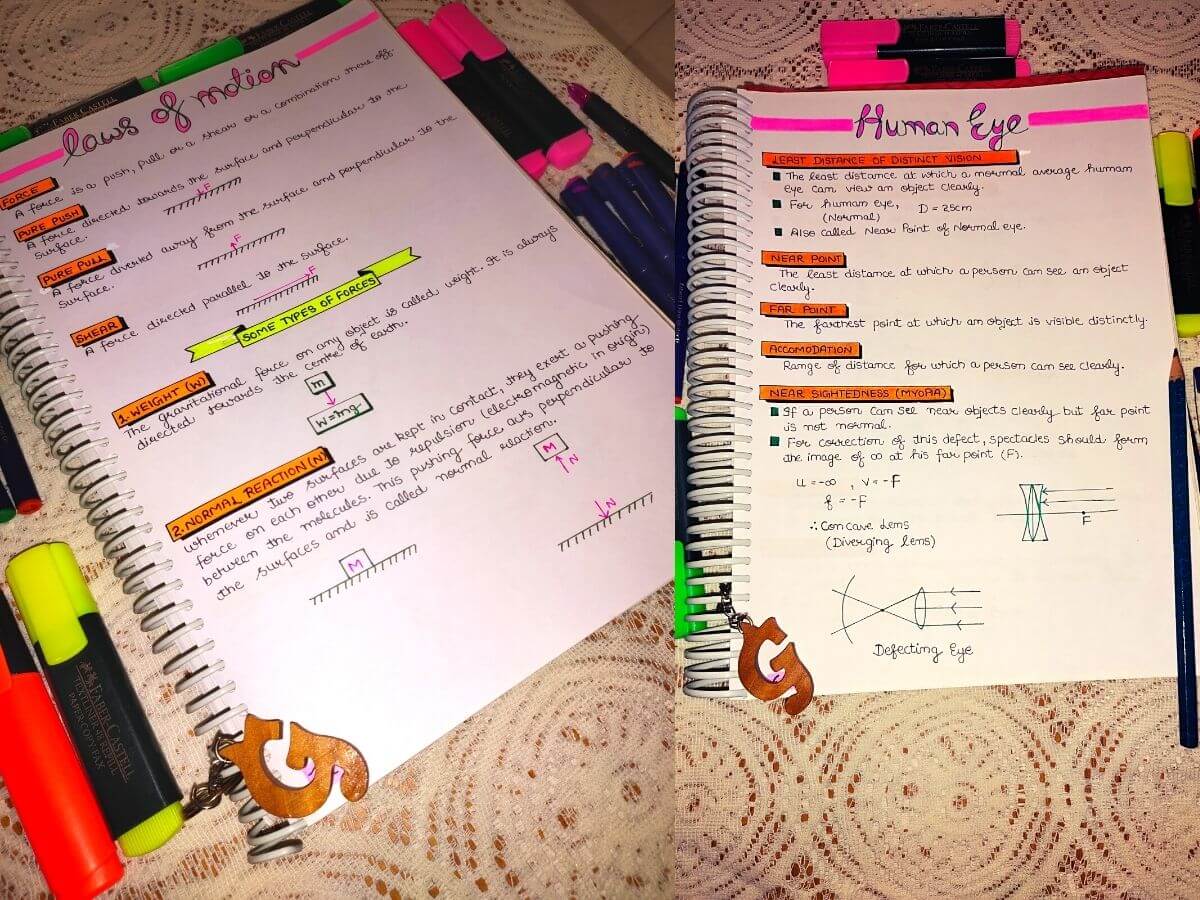 Laws of Motion
FORCE
A force is a push, pull or a shear or a combination there off.
PURE PUSH
A force directed towards the surface and perpendicular to the
surface.
F
PURE PULL
A force directed away from the surface and perpendicular to the
surface.
F
SHEAR
A force directed parallel to the surface.
F
SOME TYPES OF FORCES
1. WEIGHT (W)
The gravitational force on any object is called weight. It is always
directed towards the centre of earth.
m
W=mg
2. NORMAL REACTION (N)
Whenever two surfaces are kept in contact, they exert a pushing
force on each other due to repulsion (electromagnetic in origin)
between the molecules. This pushing force acts perpendicular to
the surfaces and is called normal reaction.
M
N
N
M
FABER-CASTELL
FABER-CASTELL
TEXTLINER 48 REFILL
PAPER·COPY·FAX
G
Human Eye
LEAST DISTANCE OF DISTINCT VISION
The least distance at which a normal average human
eye can view an object clearly.
For human eye, D = 25cm
(Normal)
Also called Near Point of Normal eye.
NEAR POINT
The least distance at which a person can see an object
clearly.
FAR POINT
The farthest point at which an object is visible distinctly.
ACCOMODATION
Range of distance for which a person can see clearly.
NEAR SIGHTEDNESS (MYOPIA)
If a person can see near objects clearly but far point
is not normal.
For correction of this defect, spectacles should form
the image of ∞ at his far point (F).
u = -∞, v = -F
f = -F
∴ Concave Lens
(Diverging lens)
F
Defecting Eye
G